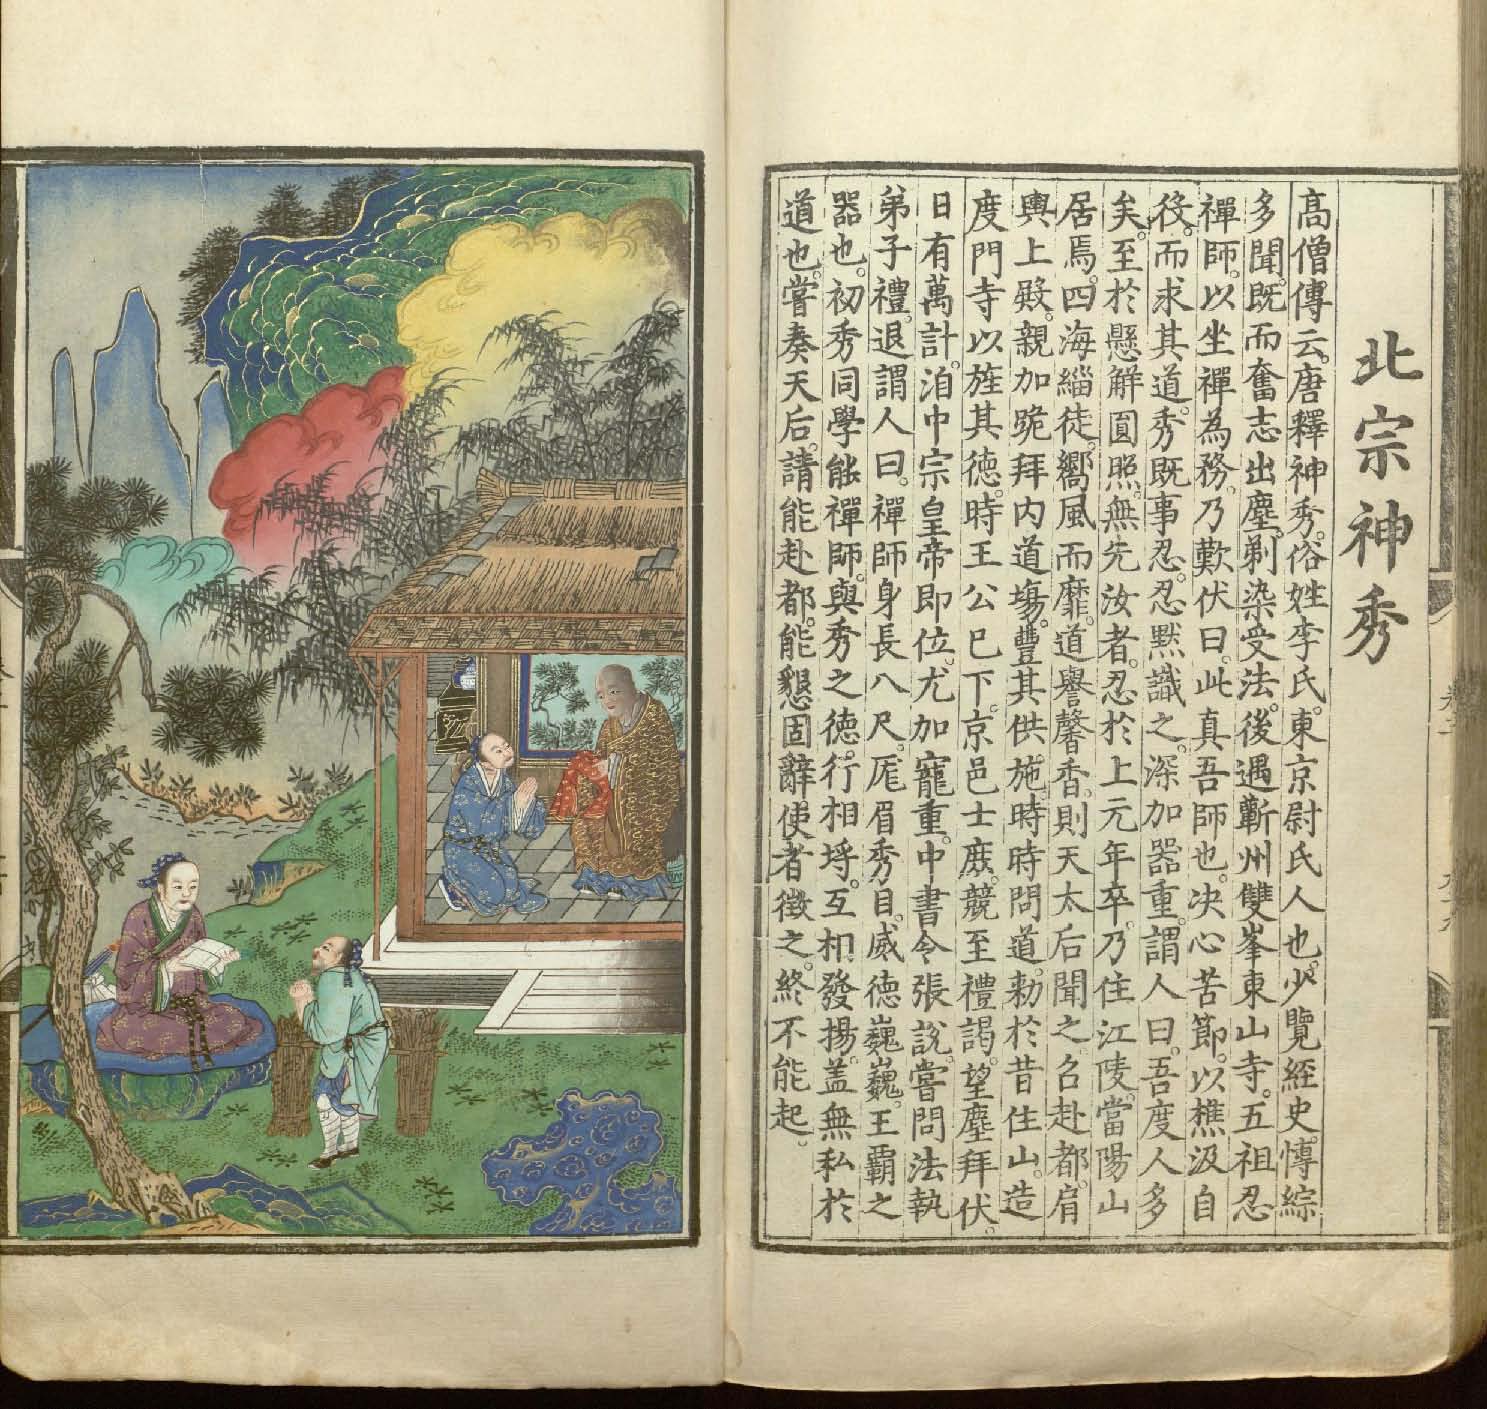 北宗神秀
高僧傳云。唐釋神秀。俗姓李氏。東京尉氏人也。少覽經史。愽綜
多聞。既而奮志出塵。剃染受法。後遇蘄州雙峯東山寺。五祖忍
禪師。以坐禪為務。乃歎伏曰。此真吾師也。决心苦節。以樵汲自
役。而求其道。秀既事忍。忍默識之。深加器重。謂人曰。吾度人多
矣。至於懸解圓照。無先汝者。忍於上元年卒。乃往江陵。當陽山
居焉。四海緇徒。嚮風而靡。道譽馨香。則天太后聞之。召赴都。肩
輿上殿。親加跪拜。内道塲。豐其供施。時時問道。勑於昔住山。造
度門寺以旌其德。時王公已下。京邑士庶。競至禮謁。望塵拜伏。
日有萬計。洎中宗皇帝即位。尤加寵重。中書令張說。嘗問法執
弟子禮。退謂人曰。禪師身長八尺。厖眉秀目。威德巍巍。王霸之
器也。初秀同學能禪師。與秀之德。行相埒。互相發揚。盖無私於
道也。嘗奏天后。請能赴都。能懇固辭。使者徵之。終不能起。